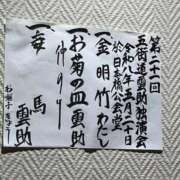 第二十一回
五街道雲助独演会
令和八年五月二十日
於日本橋公会堂
一 金明竹 わたし
一 お菊の皿 雲助
仲のり
一 馬 雲助